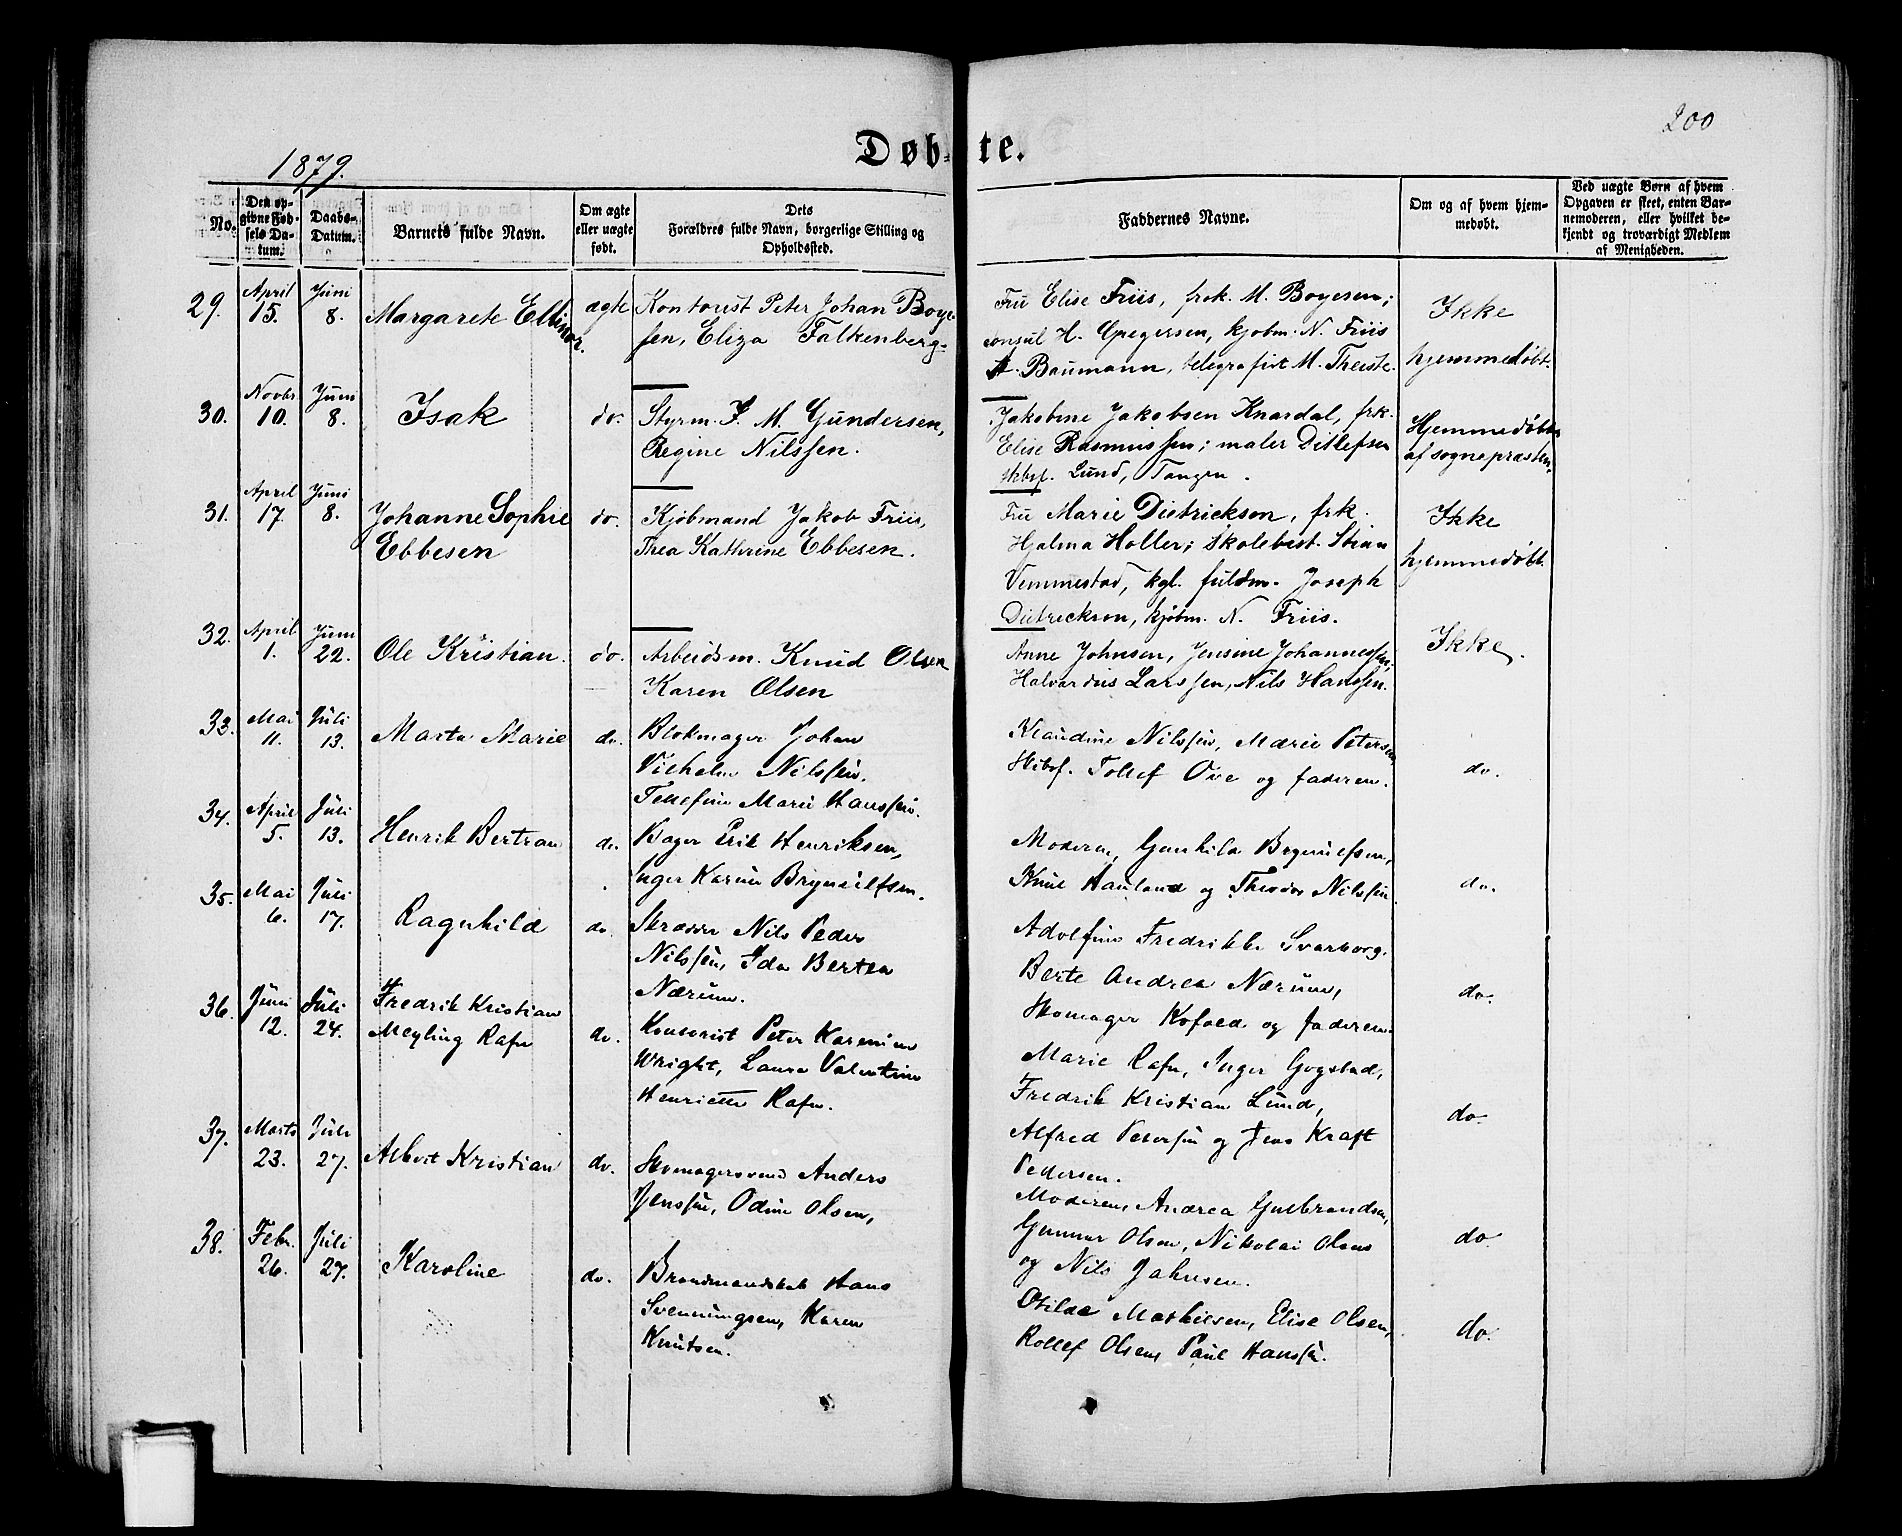 200
Døb-te.
1879.
No.
Den opgivne Fødsels Datum.
Daabs-Datum.
Barnets fulde Navn.
Om ægte eller uægte født.
Dets Forældres fulde Navn, borgerlige Stilling og Opholdssted.
Faddernes Navne.
Om og af hvem hjemmedøbt.
Ved uægte Børn af hvem Opgaven er skeet, enten Barnemoderen, eller hvilket bekjendt og troværdigt Medlem af Menigheden.
29. April 15. Juni 8. Margarete Ellinor. ægte
Kontorist Peter Johan Boye-
sen, Eliza Falkenberg.
Fru Elise Friis, frk. M. Boyesen;
consul H. Gregersen, kjøbm. N. Friis
A. Baumann, telegrafist M. Theiste.
Ikke
hjemmedøbt.
30. Novbr 10. Juni 8. Isak do.
Styrm. I. M. Gundersen,
Regine Nilssen.
Jakobine Jakobsen Knardal, frk.
Elise Rasmussen; maler Ditlefsen
skbsf. Lund, Tangen.
Hjemmedøbt
af sognepræsten.
31. April 17. Juni 8. Johanne Sophie
Ebbesen do.
Kjøbmand Jakob Friis,
Thea Kathrine Ebbesen.
Fru Marie Dietrickson, frk.
Hjalma Holler; skolebest. Stian
Vemmestad, kgl. fuldm. Joseph
Dietrickson, kjøbm. N. Friis.
Ikke
hjemmedøbt.
32. April 1. Juni 22. Ole Kristian. do.
Arbeidsm. Knud Olsen
Karen Olsen
Anne Johnsen, Jensine Johannessen,
Halvardus Larssen, Nils Hanssen.
Ikke.
33. Mai 11. Juli 13. Marta Marie do.
Blokmager Johan
Vilhelm Nilssen.
Tellefine Marie Hanssen.
Klaudine Nilssen, Marie Petersen
Skibsf. Tollef Ove og faderen.
do.
34. April 5. Juli 13. Henrik Bertran do.
Bager Erik Henriksen,
Inger Karine Brynildsen.
Moderen, Gunhild Brynildsen,
Knut Hauland og Theodor Nilssen
do.
35. Mai 6. Juli 17. Ragnhild do.
Skræder Nils Peder
Nilssen, Ida Bertea
Nærum.
Adolfine Fredrikke Svarborg.
Berte Andrea Nærum,
Skomager Kofoed og faderen.
do.
36. Juni 12. Juli 24. Fredrik Kristian
Meyling Rafn do.
Kontorist Peter Karenius
Wright, Laura Valentine
Henriette Rafn.
Marie Rafn, Inger Gogstad,
Fredrik Kristian Lund,
Alfred Petersen og Jens Kraft
Pedersen.
do.
37. Marts 23. Juli 27. Albert Kristian do.
Skomagersvend Anders
Jenssen, Odine Olsen,
Moderen, Andrea Gulbrandsen,
Gunnar Olsen, Nikolai Olsen
og Nils Jahnsen.
do.
38. Febr. 26. Juli 27. Karoline do.
Brandmandskab Hans
Svenningsen, Karen
Knutsen.
Otilde Mathisen, Elise Olsen,
Rollef Olsen, Paul Hanssen.
do.